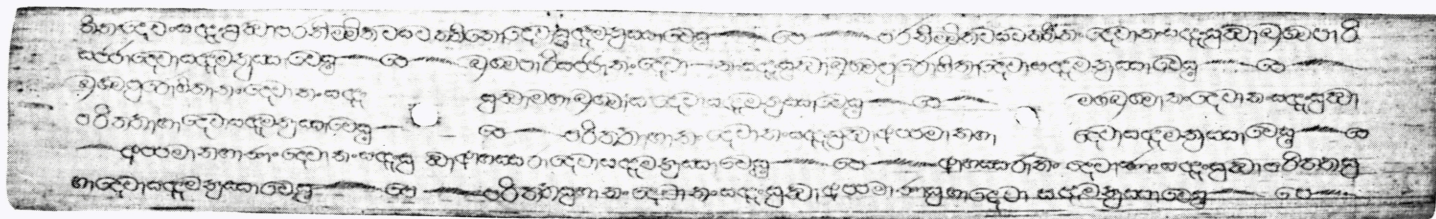 තීනංදෙවානංසද්දංසුත්වාපරනිම්මිතවසවත්තිනොදෙවාසද්දමනුස්සාවෙසුං — පෙ — පරනිම්මිතවසවත්තීනංදෙවානංසද්දංසුත්වාබ්‍රහ්මපාරි
සජ්ජාදෙවාසද්දමනුස්සාවෙසුං — පෙ — බ්‍රහ්මපාරිසජ්ජානංදෙවානංසද්දංසුත්වාබ්‍රහ්මපුරොහිතාදෙවාසද්දමනුස්සාවෙසුං — පෙ —
බ්‍රහ්මපුරොහිතානංදෙවානංසද්දං සුත්වාමහාබ්‍රහ්මානොදෙවාසද්දමනුස්සාවෙසුං — පෙ — මහාබ්‍රහ්මානංදෙවානංසද්දංසුත්වා
පරිත්තාභාදෙවාසද්දමනුස්සාවෙසුං — පෙ — පරිත්තාභානංදෙවානංසද්දංසුත්වාඅප්පමානාභා දෙවාසද්දමනුස්සාවෙසුං — පෙ
— අප්පමානාභානංදෙවානංසද්දංසුත්වාආභස්සරාදෙවාසද්දමනුස්සාවෙසුං — පෙ — ආභස්සරානංදෙවානංසද්දංසුත්වාපරිත්තසු
භාදෙවාසද්දමනුස්සාවෙසුං — පෙ — පරිත්තසුභානංදෙවානංසද්දංසුත්වාඅප්පමාණසුභාදෙවාසද්දමනුස්සාවෙසුං — පෙ —